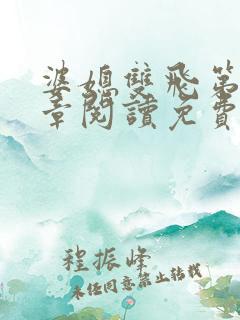 婆媳雙飛第
章閱讀免費
程振峰
未任同意禁止转载